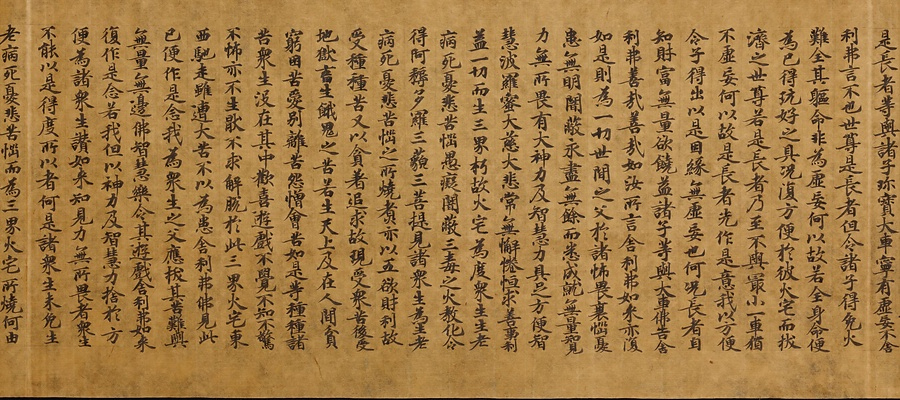 是長者等與諸子珍寶大車寧有虛妄不舍
利弗言不也世尊是長者但令諸子得免火
難全其軀命非為虛妄何以故若全身命便
為已得玩好之具況復方便於彼火宅而拔
濟之世尊若是長者乃至不與最小一車猶
不虛妄何以故是長者先作是意我以方便
令子得出以是因緣無虛妄也何況長者自
知財富無量欲饒益諸子等與大車佛告舍
利弗善哉善哉如汝所言舍利弗如來亦復
如是則為一切世間之父於諸怖畏衰惱憂
患無明闇蔽永盡無餘而悉成就無量知見
力無所畏有大神力及智慧力具足方便智
慧波羅蜜大慈大悲常無懈惓恒求善事利
益一切而生三界朽故火宅為度眾生生老
病死憂悲苦惱愚癡闇蔽三毒之火教化令
得阿耨多羅三藐三菩提見諸眾生為生老
病死憂悲苦惱之所燒煮亦以五欲財利故
受種種苦又以貪著追求故現受眾苦後受
地獄畜生餓鬼之苦若生天上及在人間貧
窮困苦愛別離苦怨憎會苦如是等種種諸
苦眾生沒在其中歡喜遊戲不覺不知不驚
不怖亦不生厭不求解脫於此三界火宅東
西馳走雖遭大苦不以為患舍利弗佛見此
已便作是念我為眾生之父應拔其苦難與
無量無邊佛智慧樂令其遊戲舍利弗如來
復作是念若我但以神力及智慧力捨於方
便為諸眾生讚如來知見力無所畏者眾生
不能以是得度所以者何是諸眾生未免生
老病死憂悲苦惱而為三界火宅所燒何由